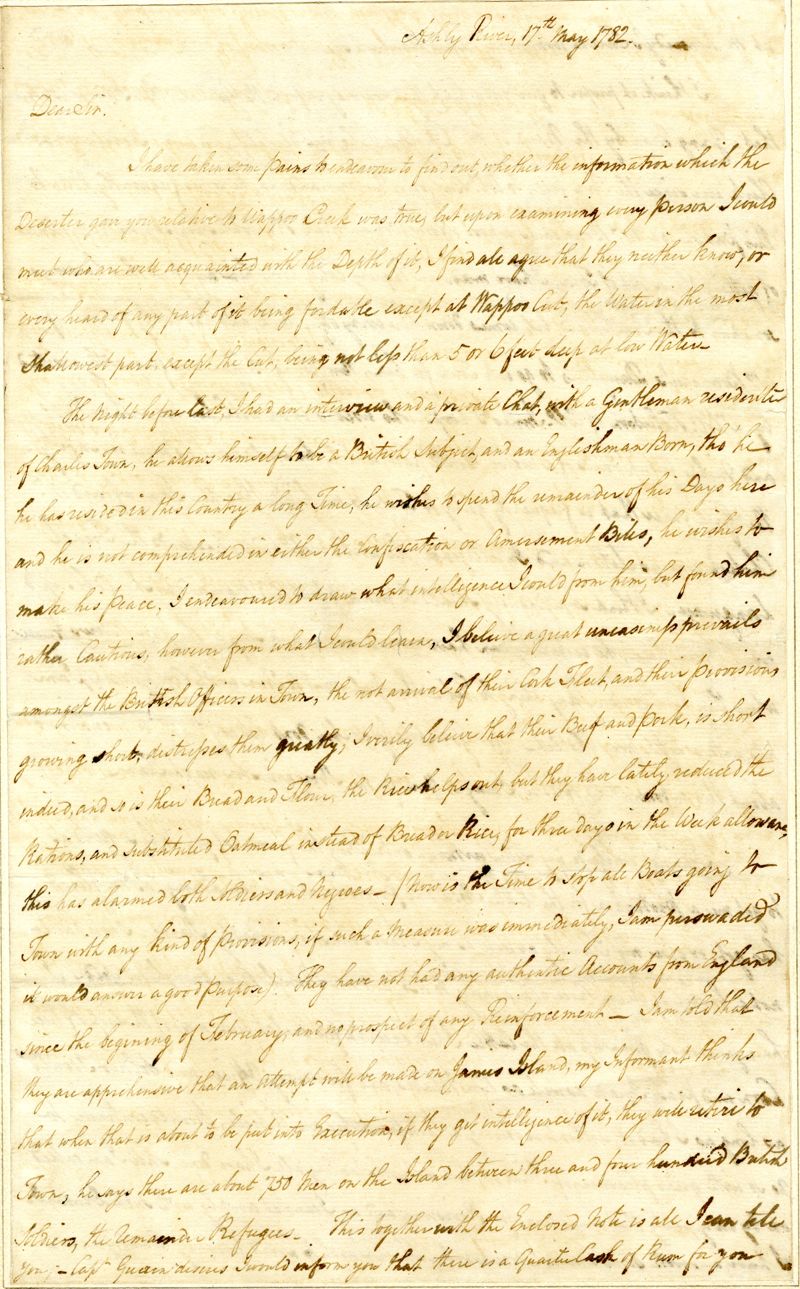 Ashly River, 17th May 1782.
Dear Sir.
I have taken some pains to endeavour to find out, whether the information which the
Deserter gave you relative to Wappoo Creek was true, but upon examining every person I could
meet who are well acquainted with the Depth of it, I find all agree that they neither know, or
every heard of any part of it being fordable except at Wappoo Cut, the Water in the most
shallowest part, except the Cut, being not less than 5 or 6 feet deep at low Water—
The Night before last, I had an interview and a private Chat, with a Gentleman residenter
of Charles Town, he allows himself to be a British Subject, and an Englishman Born, tho' he
he has resided in this Country a long Time, he wishes to spend the remainder of his Days here
and he is not comprehended in either the Confiscation or Amersement Bills, he wishes to
make his peace, I endeavoured to draw what intelligence I could from him, but found him
rather Cautious, however from what I could learn, I believe a great uneasiness prevails
amongst the British Officers in Town, the not arrival of their Cork Fleet, and their provisions
growing short, distresses them greatly; I verily beleive that their Beef and pork, is short
indeed, and so is their Bread and Flour, the Rice helps out, but they have lately reduced the
Rations, and substituted Oatmeal instead of Bread or Rice, for three days in the Week allowance,
this has alarmed both Soldiers and Negroes— (Now is the Time to stop all Boats going to
Town with any kind of provisions, if such a Measure was immediately, I am perswaded
it would answer a good purpose). They have not had any authentic Accounts from England
since the begining of February, and no prospect of any Reinforcement — I am told that
they are apprehensive that an attempt will be made on James Island, my Informant thinks
that when that is about to be put into Execution, if they get intelligence of it, they will retire to
Town, he says there are about 750 Men on the Island between three and four hundred British
Soldiers, the Remainder Refugees— This together with the Enclosed Note is all I can tell
you;— Capt. desires I would inform you that there is a Quarter Cask of Rum for you